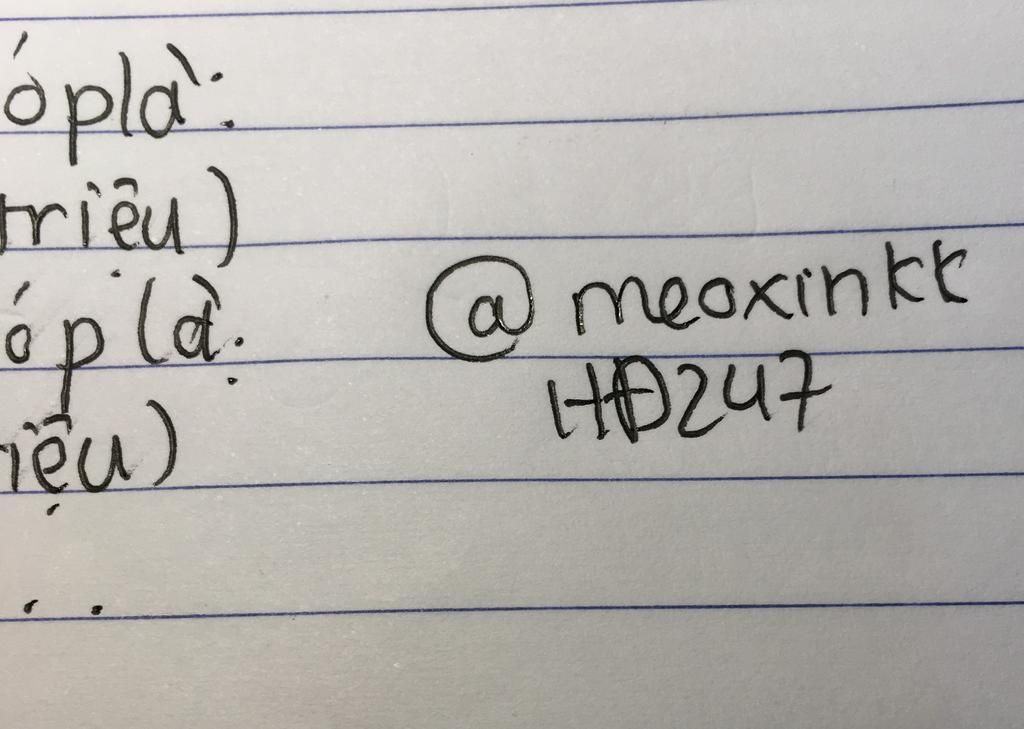 óp là:
triệu)
óp là:
iệu)
@meoxinkk
HĐ247
..